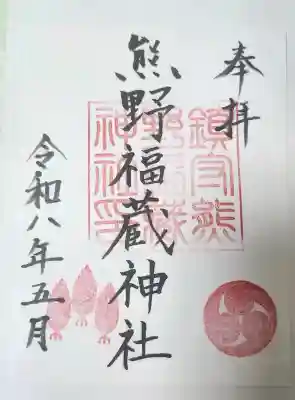 奉拝
熊野福蔵神社
令和八年五月